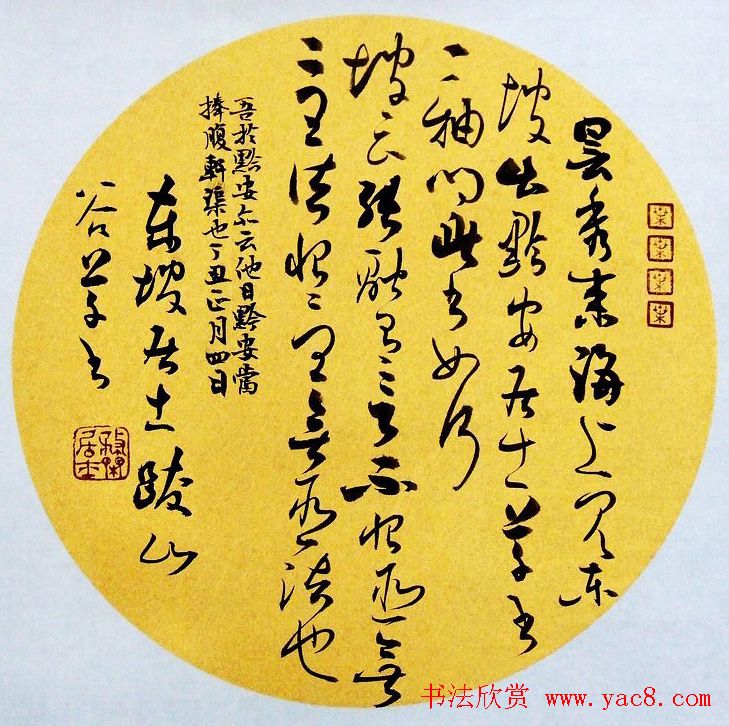 曇秀来海上见东
坡出黔安居士草书
二軸问此书如何
坡云张融有言不恨臣無
二王法恨二王無臣法也
吾於黔安亦云他日黔安當
捧腹軒渠也丁丑正月四日
东坡居士跋山
谷草书
书法欣赏 www.yac8.com